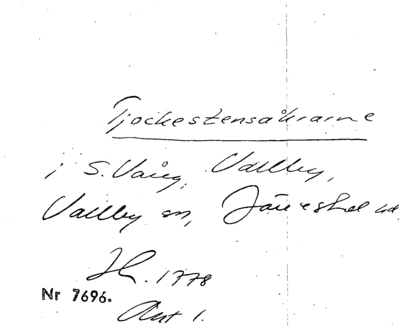 Tjockestensåkrarne
i S. Vång, Vallby,
Vallby sn, Järrestad hd.
Lk. 1778
Nr 7696.
Akt 1.